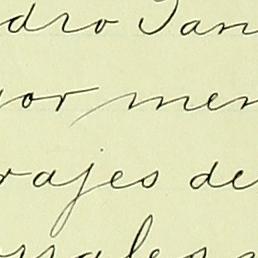 dro San
yor men
rajes de